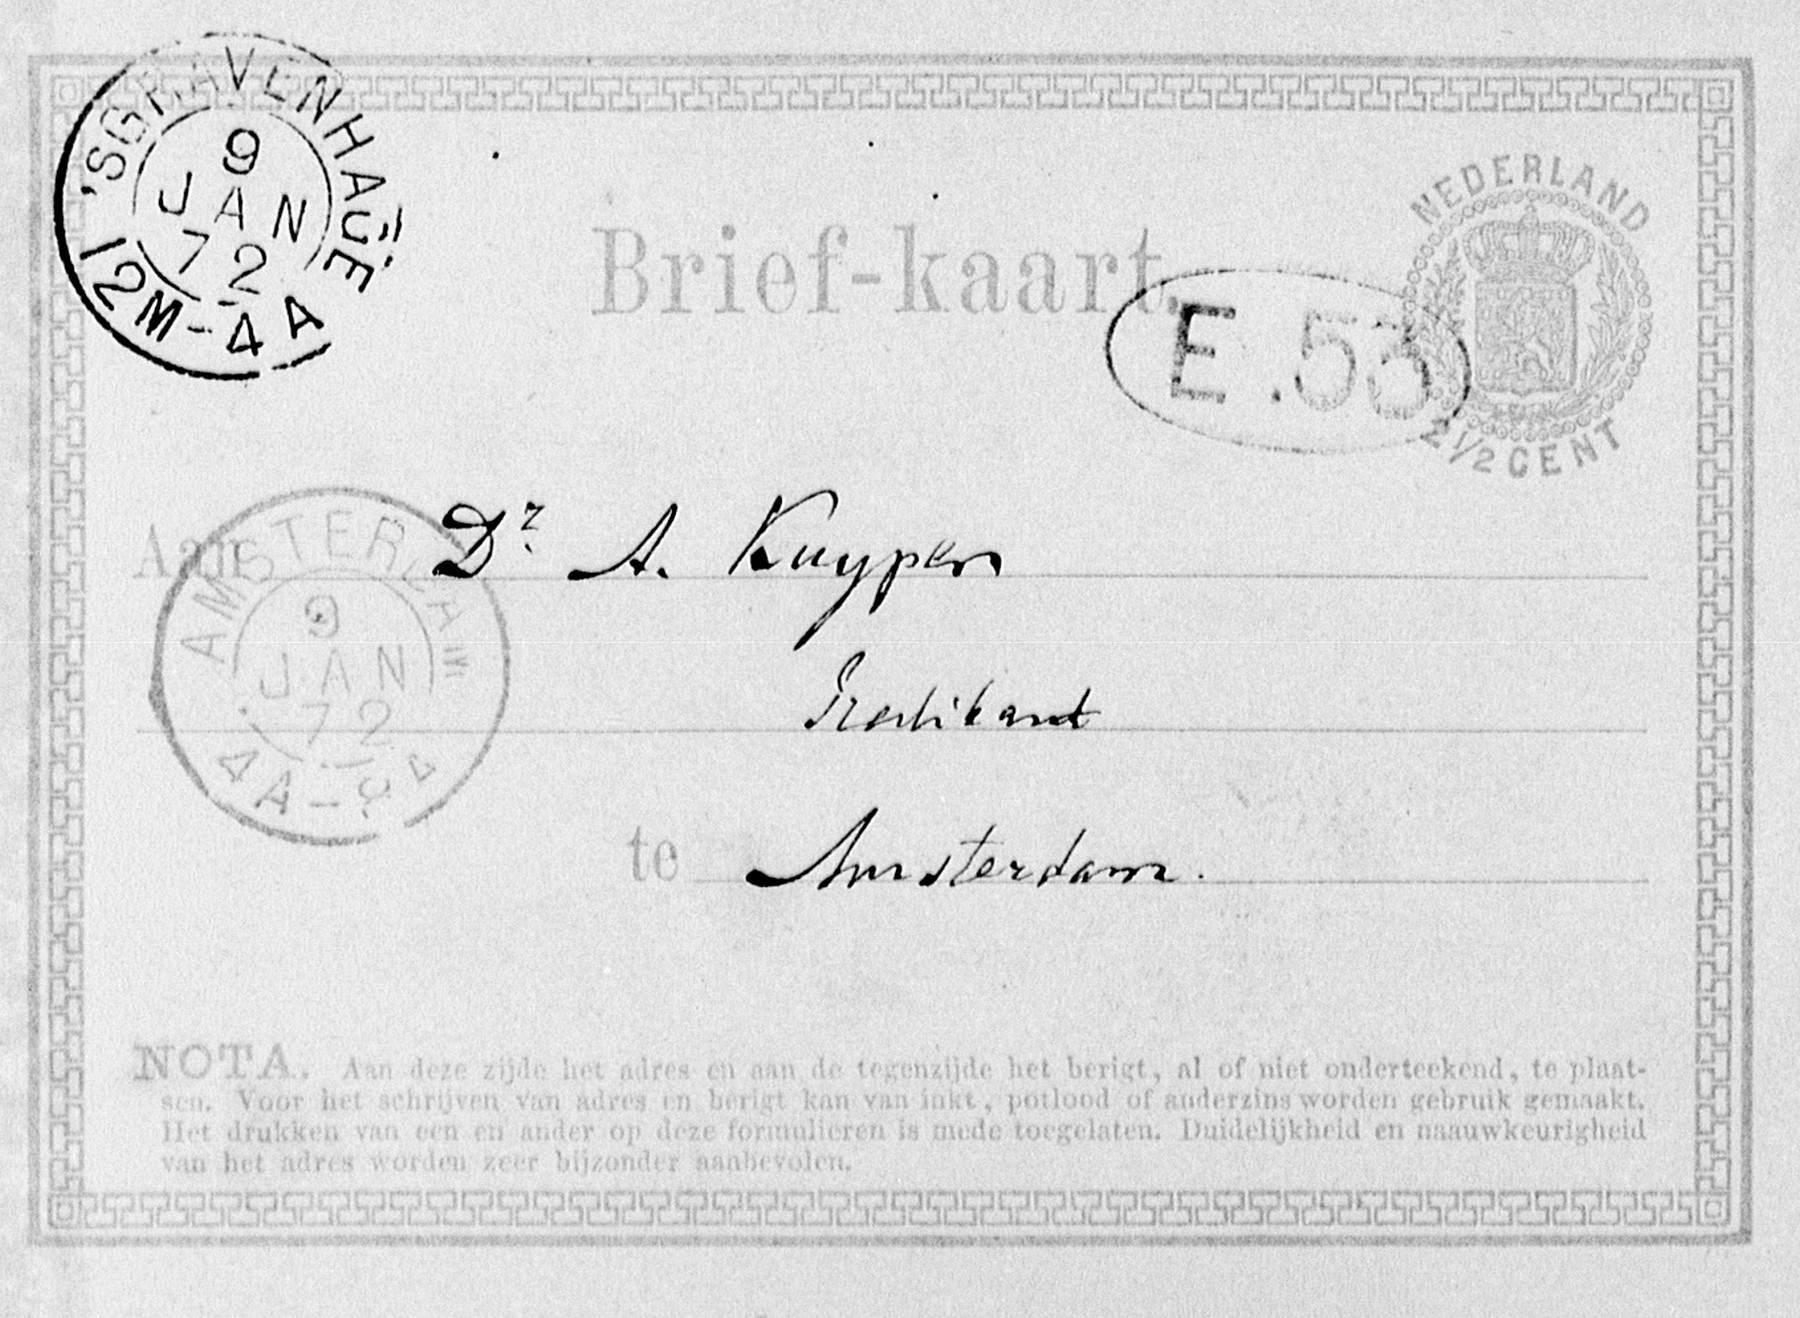 'SGRAVENHAGE
9
JAN
72
12M-4A
NEDERLAND
Brief-kaart.
E.53
2½ CENT
Aan Dr. A. Kuyper
AMSTERDAM
9
JAN
72
4A-8
Predikant
te Amsterdam.
NOTA. Aan deze zijde het adres en aan de tegenzijde het berigt, al of niet onderteekend, te plaat-
sen. Voor het schrijven van adres en berigt kan van inkt, potlood of anderzins worden gebruik gemaakt.
Het drukken van een en ander op deze formulieren is mede toegelaten. Duidelijkheid en naauwkeurigheid
van het adres worden zeer bijzonder aanbevolen.